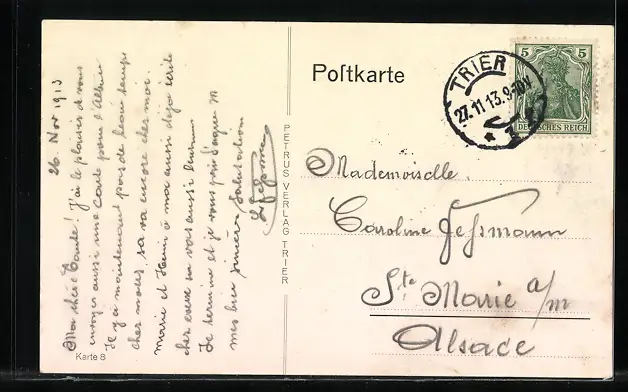 26 Nov 1913
Ma chère Tante! J'ai le plaisir de vous
envoyer aussi une Carte pour l'Album
Il y a maintenant pas de beau temps
chez nous, sa va encore chez moi.
Marie et Henri à moi aussi déjà écrite
chez eux sa vas aussi bien
Je termine et je vous prie d'agréer
mes bien sincère Salutation
Karte 8
PETRUS VERLAG TRIER
Postkarte
TRIER
27.11.13.9-10V
5 5
DEUTSCHES REICH
Mademoiselle
Caroline Jessmann
Ste Marie a/m
Alsace